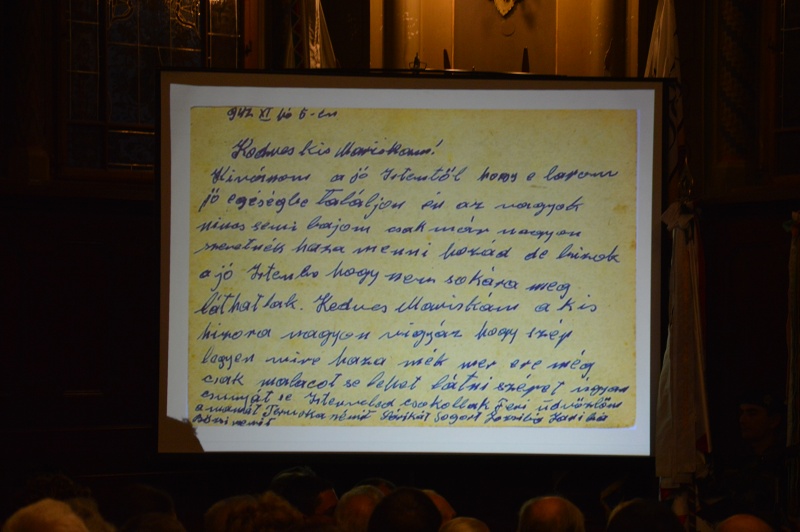 942 XI hó 6-én
Kedves kis Mariskám!
Kivánom a jó Istentől hogy e larom
jó egéségbe találjon én az vagyok
nincs semi bajom csak már nagyon
szeretnék haza menni hozád de bizok
a jó Istenbe hogy nem sokára meg
láthatlak. Kedves Mariskám a kis
hizora nagyon vigyáz hogy szép
legyen mire haza mék mer ere még
csak malacot se lehet látni szeret ugyan
csunyát se Istenveled csokollak Feri üdvözlöm
a mamát Teruska nénit Sárikát Sogort
Bözsi nénit